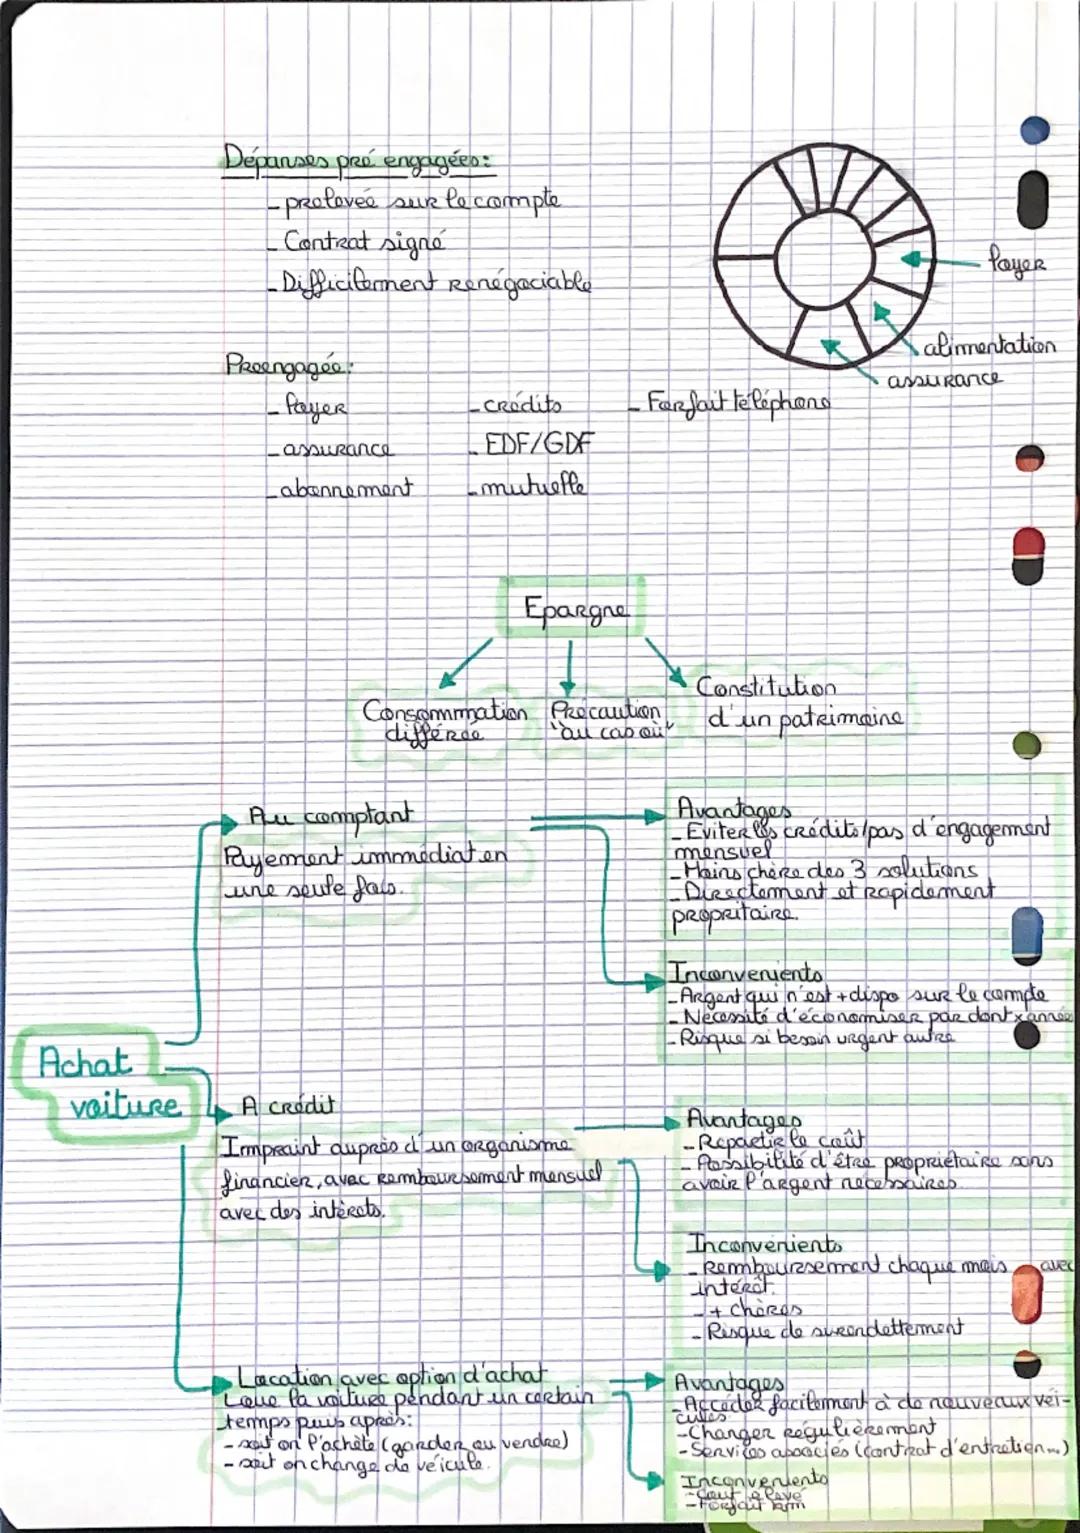 Dépanses pré engagées:
- prelevée sur le compte
- Contrat signé
- Difficilement renégociable
loyer
alimentation
assurance
Preengagée:
- loyer
- crédits
- Forfait téléphone
- assurance
- EDF/GDF
- abonnement
- mutuelle
Epargne
Consommation
différée
Précaution
"au cas où"
Constitution
d'un patrimoine
Au comptant
Payement immédiat en
une seule fois.
Avantages
- Eviter les crédits/pas d'engagement
mensuel
- Moins chère des 3 solutions
- Directement et rapidement
propritaire.
Inconvenients
- Argent qui n'est + dispo sur le compte
- Necessité d'économiser par dont x année
- Risque si besoin urgent autre
Achat
voiture
A crédit
Impraint auprès d'un organisme
financier, avec remboursement mensuel
avec des intérets.
Avantages
- Repartir le coût
- Possibilité d'être propriétaire sans
avoir l'argent necessaires.
Inconvénients
- Remboursement chaque mois avec
intérêt.
- + chères
- Risque de surendettement
Location avec option d'achat
Loue la voiture pendant un certain
temps puis après:
- soit on l'achète (garder ou vendre)
- soit on change de véicule.
Avantages
- Acceder facilement à de nouveaux véi-
cules
- Changer régulièrement
- Services associés (contrat d'entretien...)
Inconvenients
- Cout elevé
- Forfait km